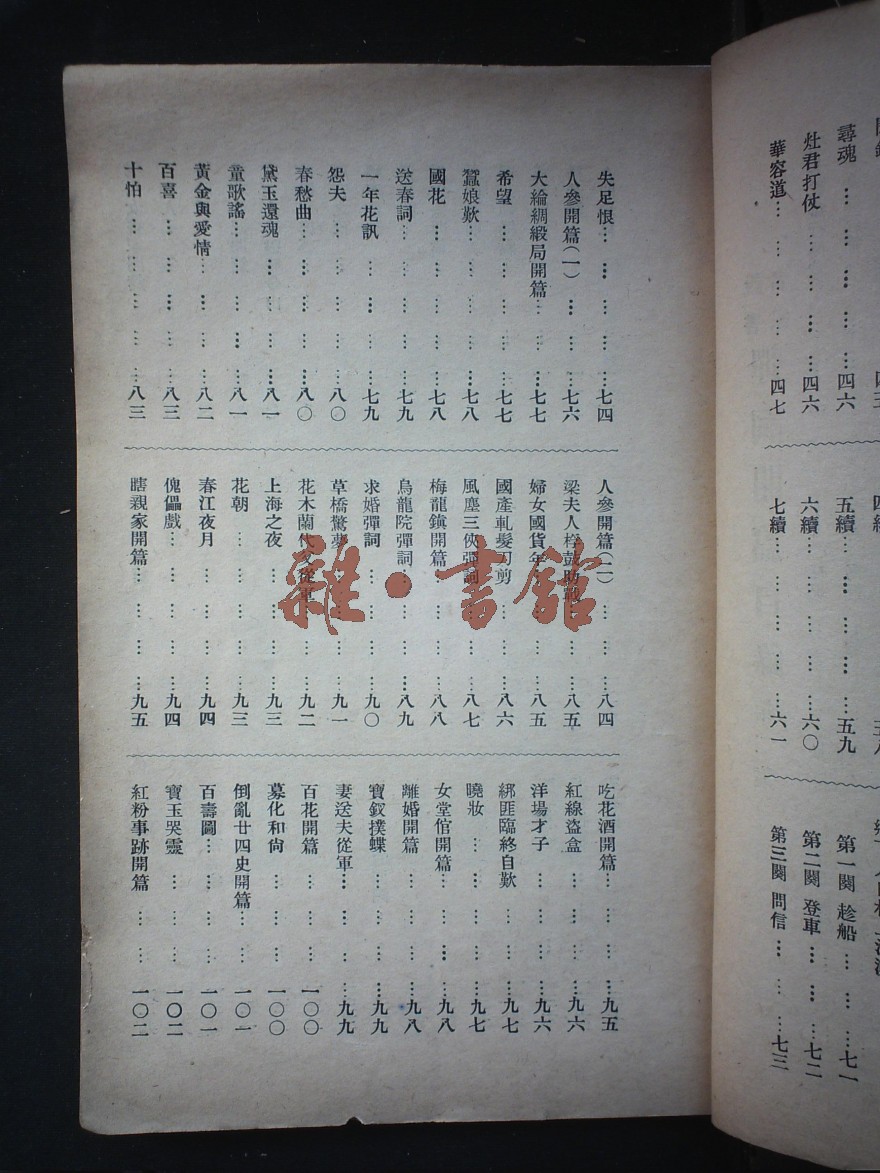 尋魂 … … … … …四六
灶君打仗 … … … …四六
華容道… … … … …四七
五續… … … … …五九
六續… … … … …六〇
七續… … … … …六一
第一闋 趁船 … … …七一
第二闋 登車 … … …七二
第三闋 問信… … …七三
失足恨… … … … …七四
人參開篇(一) … … …七六
大綸綢緞局開篇… … …七七
希望 … … … … …七七
蠶娘歎… … … … …七八
國花 … … … … …七八
送春詞… … … … …七九
一年花訊 … … … …七九
怨夫 … … … … …八〇
春愁曲… … … … …八〇
黛玉還魂 … … … …八一
童歌謠… … … … …八一
黃金與愛情… … … …八二
百喜 … … … … …八三
十怕 … … … … …八三
人參開篇(二) … … …八四
梁夫人桴鼓助戰… … …八五
婦女國貨年… … … …八五
國產軋髮刀剪 … … …八六
風塵三俠彈詞… … …八七
梅龍鎮開篇 … … …八八
烏龍院彈詞… … … …八九
求婚彈詞 … … … …九〇
草橋驚夢 … … … …九一
花木蘭代父從軍… … …九二
上海之夜 … … … …九三
花朝 … … … … …九三
春江夜月 … … … …九四
傀儡戲… … … … …九四
瞎親家開篇… … … …九五
吃花酒開篇… … … …九五
紅線盜盒 … … … …九六
洋場才子 … … … …九六
綁匪臨終自歎 … … …九七
曉妝 … … … … …九七
女堂倌開篇… … … …九八
離婚開篇 … … … …九八
寶釵撲蝶 … … … …九九
妻送夫從軍… … … …九九
百花開篇 … … … 一〇〇
募化和尙 … … … 一〇〇
倒亂廿四史開篇… … 一〇一
百壽圖… … … … 一〇一
寶玉哭靈 … … … 一〇二
紅粉事跡開篇 … … 一〇二
雜·書館